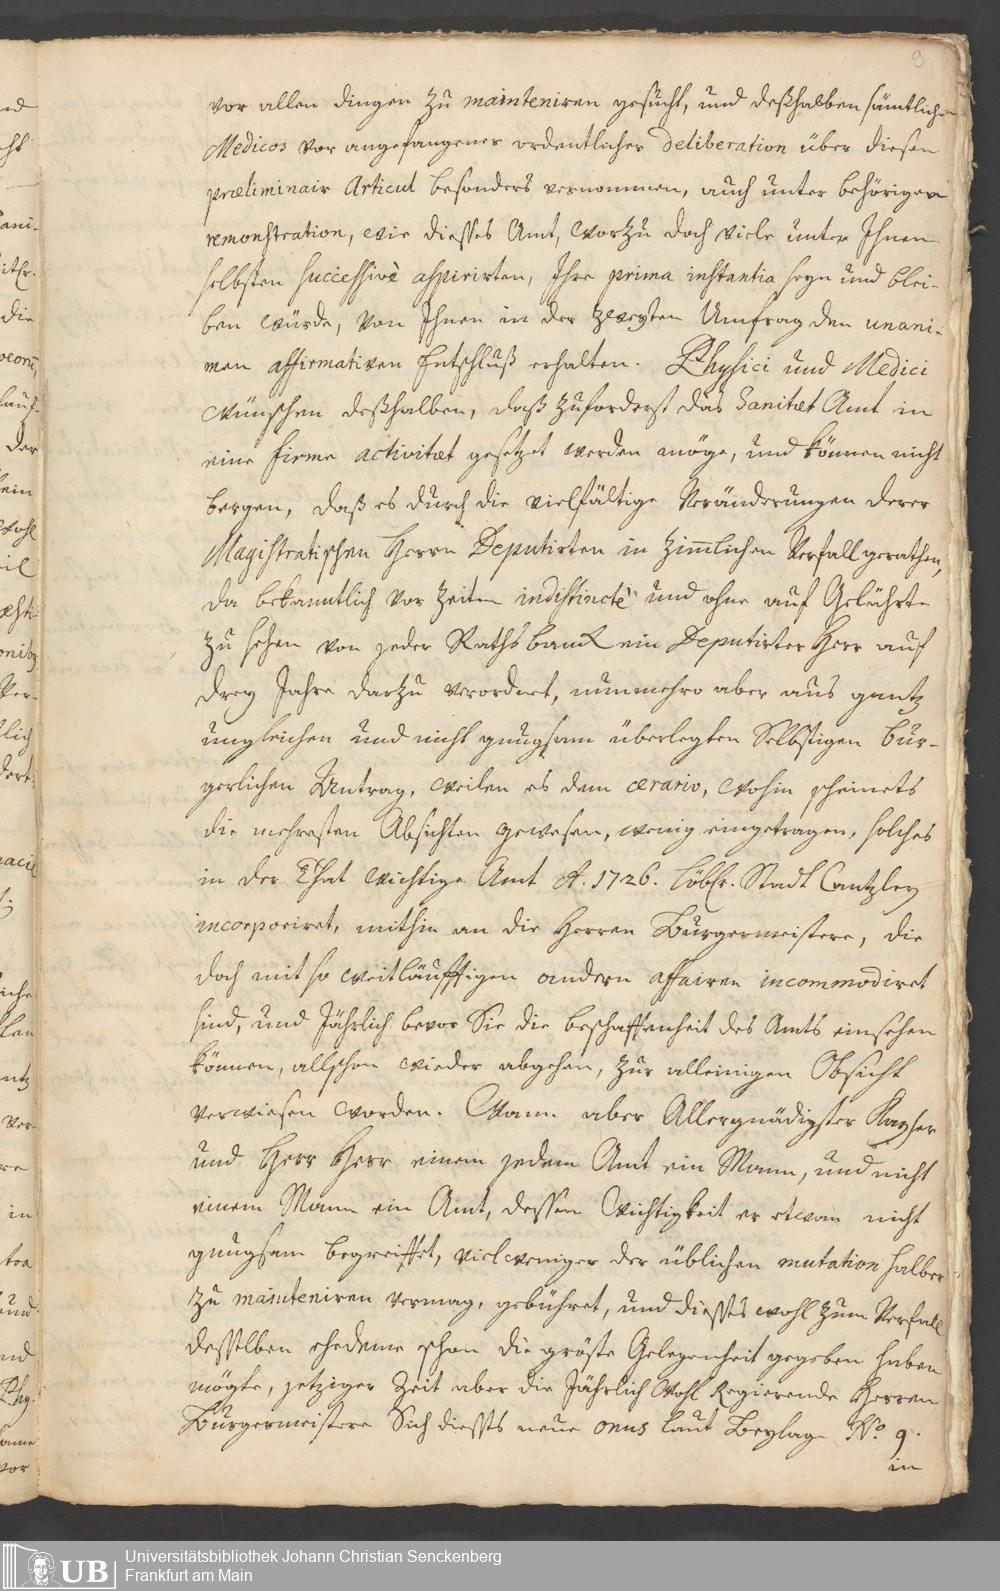 9
vor allen dingen zu mainteniren gesucht, und deßhalben sämtliche
Medicos vor angefangener ordentlicher deliberation über diesen
præliminair Articul besonders vernommen, auch unter behöriger
remonstration, wie diesses Amt, worzu doch viele unter Ihnen
selbsten successivè aspirirten, Ihre prima instantia seyn und blei-
ben würde, von Ihnen in der zweyten Umfrag den unani-
men affirmativen Entschluß erhalten. Physici und Medici
wünschen deßhalben, daß zuforderst das Sanitæt Amt in
eine firme activitæt gesetzet werden möge, und können nicht
bergen, daß es durch die vielfältige Veränderungen derer
Magistratischen Herrn Deputirten in zimmlichen Verfall gerathen,
da bekanntlich vor Zeiten indistinctè und ohne auf Gelährte
zu sehen von jeder Rathsbanck ein Deputirter Herr auf
drey Jahre darzu verordnet, nunmehro aber aus gantz
ungleichen und nicht gnugsam überlegten Selbstigen bur-
gerlichen Antrag, weilen es dem ærario, wohin scheinets
die mehresten Absichten gewesen, wenig eingetragen, solches
in der That wichtige Amt A. 1726. löbl. Stadt Cantzley
incorporiret, mithin an die Herren Burgermeistere, die
doch mit so weitläufftigen andern affairen incommodiret
sind, und Jährlich bevor Sie die beschaffenheit des Amts einsehen
können, allschon wieder abgehen, zur alleinigen Obsicht
verwiesen worden. Wann aber Allergnädigster Kayser
und Herr Herr einem jedem Amt ein Mann, und nicht
einem Mann ein Amt, dessen Wichtigkeit er etwan nicht
gnugsam begreiffet, vielweniger der üblichen mutation halber
zu mainteniren vermag, gebühret, und diesses wohl zum Verfall
desselben ehedeme schon die gröste Gelegenheit gegeben haben
mögte, jetziger Zeit aber die Jährlich Wohl Regierende Herren
Burgermeistere Sich diesses neue onus laut Beylage No. 9.
in
Universitätsbibliothek Johann Christian Senckenberg
Frankfurt am Main
UB